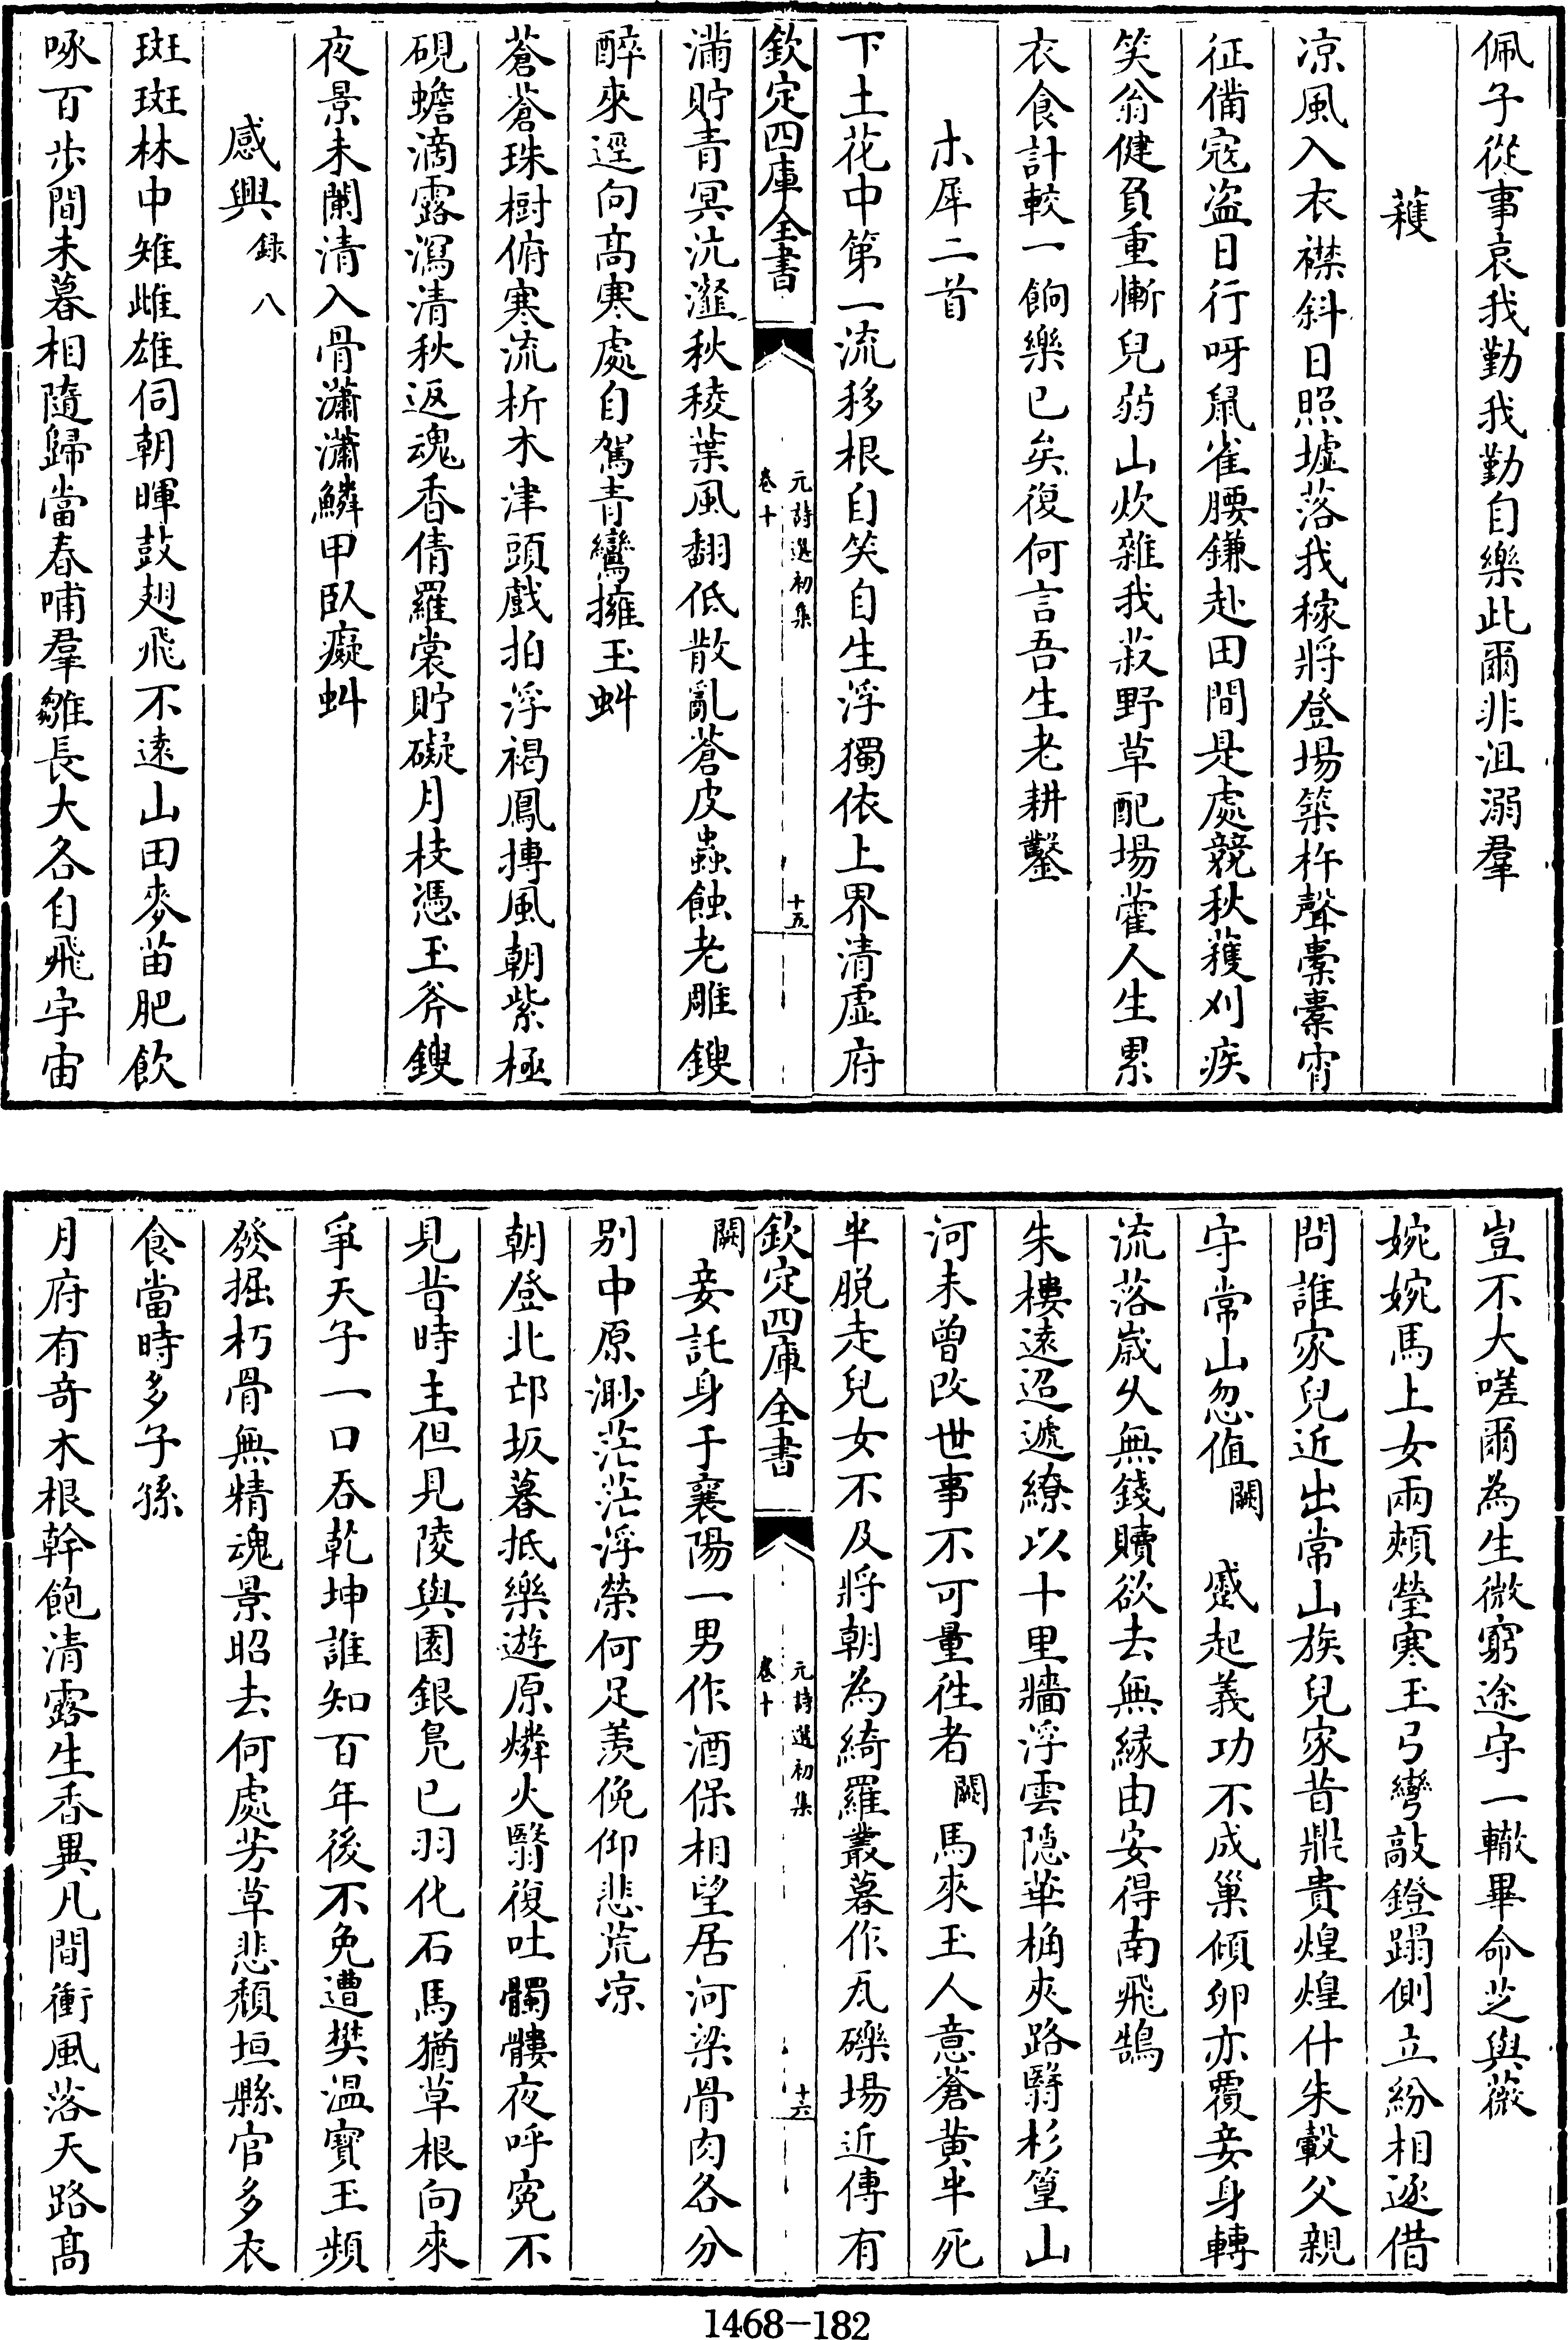 佩子從事哀我勤我勤自樂此爾非沮溺羣
穫
凉風入衣襟斜日照墟落我稼將登場築杵聲橐橐宵
征備宼盜日行呀鼠雀腰鎌赴田間是處競秋穫刈疾
笑翁健負重慚兒弱山炊雜我菽野草配場藿人生累
衣食計較一餉樂已矣復何言吾生老耕鑿
木犀二首
下土花中第一流移根自笑自生浮獨依上界清虛府
欽定四庫全書
元詩選初集
卷十
十五
滿貯青冥沆瀣秋稜葉風翻低散亂蒼皮蟲蝕老雕鎪
醉來逕向髙寒處自駕青鸞擁玉虯
蒼蒼珠樹俯寒流析木津頭戲拍浮褐鳳摶風朝紫極
硯蟾滴露瀉清秋返魂香倩羅裳貯礙月枝憑玉斧鎪
夜景未闌清入骨瀟瀟鱗甲臥癡虯
感興錄八
斑斑林中雉雌雄伺朝暉鼓翅飛不遠山田麥苗肥飲
啄百步間未暮相隨歸當春哺羣雛長大各自飛宇宙
豈不大嗟爾為生微窮途守一轍畢命芝與薇
婉婉馬上女兩頰瑩寒玉弓彎敲鐙蹋側立紛相逐借
問誰家兒近出常山族兒家昔鼎貴煌煌什朱轂父親
守常山忽值闕 蹙起義功不成巢傾卵亦覆妾身轉
流落歲久無錢贖欲去無縁由安得南飛鵠
朱樓遠迢遞繚以十里牆浮雲隱華桷夾路翳杉篁山
河未曾改世事不可量徃者闕馬來玉人意蒼黄半死
半脱走兒女不及將朝為綺羅叢暮作瓦礫場近傳有
欽定四庫全書
元詩選初集
卷十
十六
闕妾託身于襄陽一男作酒保相望居河梁骨肉各分
别中原渺茫茫浮榮何足羨俛仰悲荒凉
朝登北邙坂暮抵樂遊原燐火翳復吐髑髏夜呼寃不
見昔時主但見陵與園銀鳬已羽化石馬猶草根向來
爭天子一口吞乾坤誰知百年後不免遭樊温寳玉頻
發掘朽骨無精魂景昭去何處芳草悲頽垣縣官多衣
食當時多子孫
月府有奇木根幹飽清露生香異凡間衝風落天路髙
1468-182